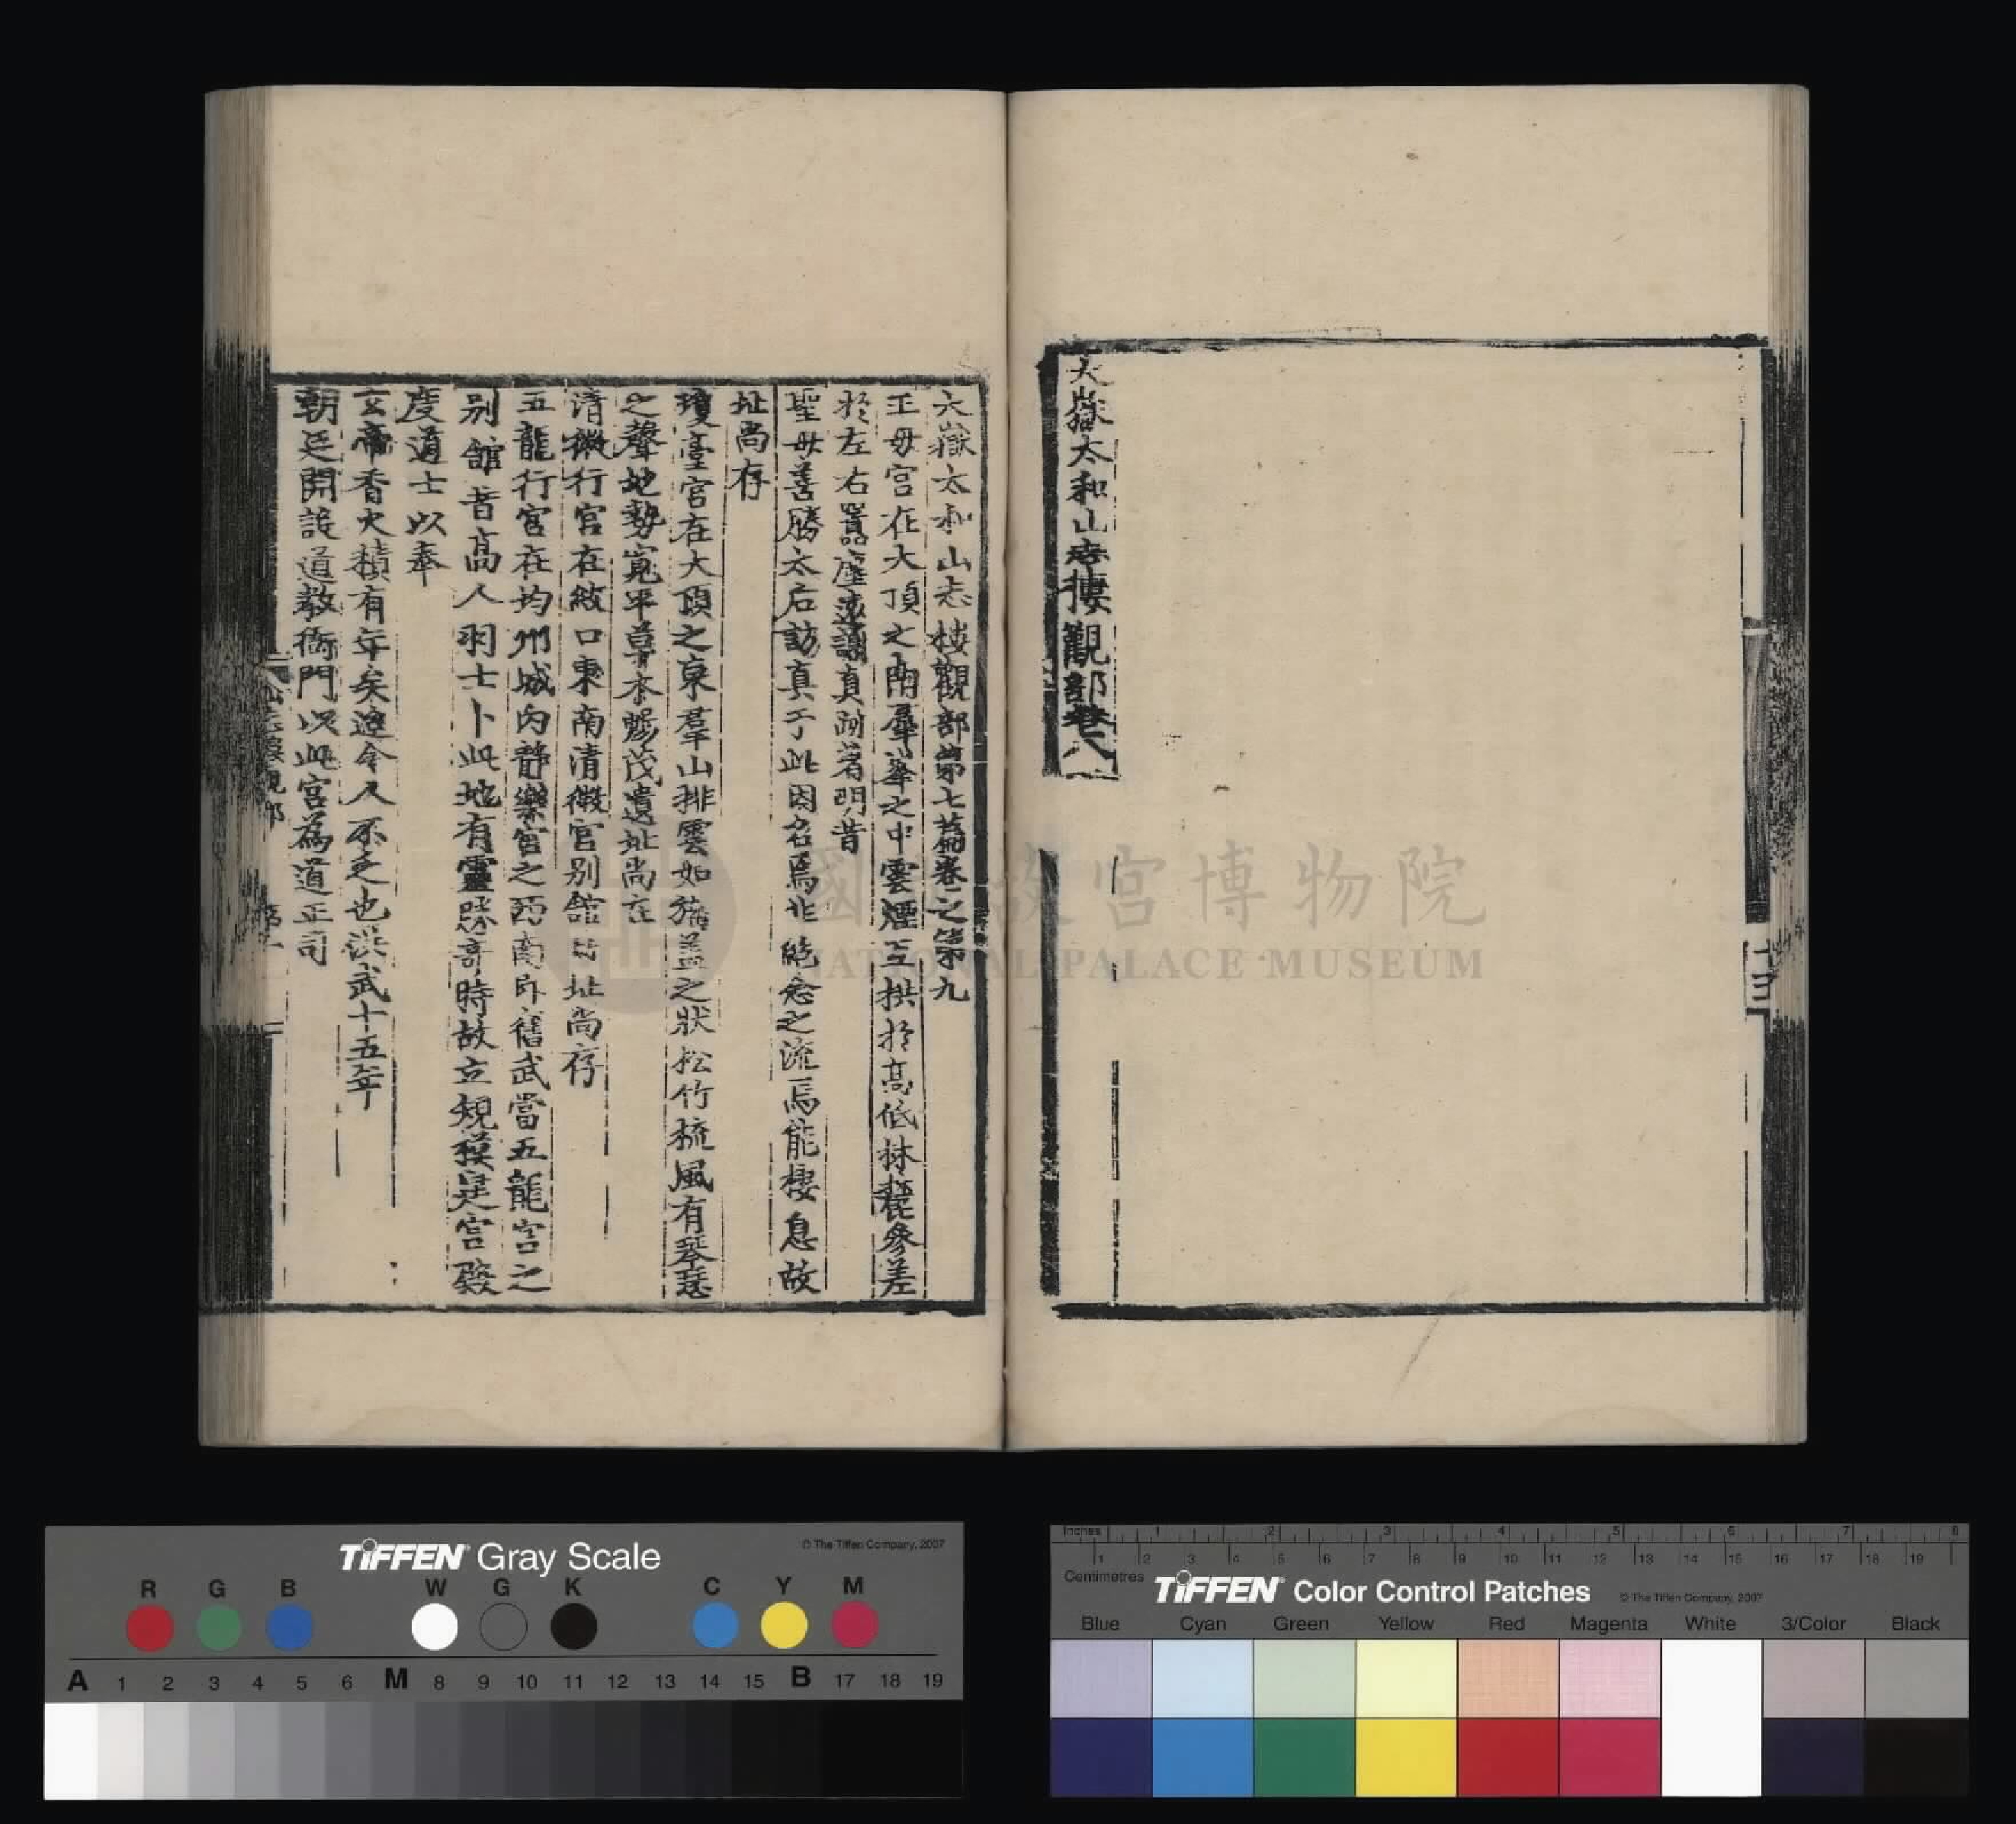 大嶽太和山志樓觀部卷八
十三
大嶽太和山志樓觀部第七篇卷之第九
王母宮在大頂之南犀峯之中雲煙互拱於高低林麓參差
於左右囂塵遠謝真游茗明昔
聖母善勝太后訪真于此因名焉非絶念之流焉能棲息故
址尚存
瓊臺宮在大頂之東羣山排雲如旛盖之狀松竹梳風有琴瑟
之聲地勢寬平草木暢茂遺址尚在
清微行宮在紋口東南清微宮别館也址尚存
五龍行宮在均州城内靜樂宮之西南即舊武當五龍宮之
别館昔高人羽士卜此地有靈蹤奇時故立規模是宮殿
度道士以奉
玄帝香火積有年矣迨今人不乏也洪武十五年
朝廷開設道教衙門以此宮爲道正司
山志樓觀部
國立故宮博物院
NATIONAL PALACE MUSEUM
TIFFEN Gray Scale
© The Tiffen Company, 2007
R G B W G K C Y M
A 1 2 3 4 5 6 M 8 9 10 11 12 13 14 15 B 17 18 19
Inches 1 2 3 4 5 6 7 8
1 2 3 4 5 6 7 8 9 10 11 12 13 14 15 16 17 18 19
Centimetres
TIFFEN Color Control Patches
© The Tiffen Company, 2007
Blue Cyan Green Yellow Red Magenta White 3/Color Black